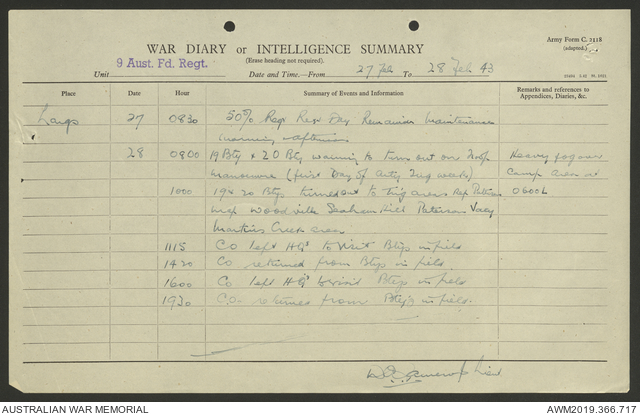 Army Form C. 2118
(adapted.)
WAR DIARY or INTELLIGENCE SUMMARY
(Erase heading not required).
9 Aust. Fd. Regt.
Unit
Date and Time.—From 27 Feb To 28 Feb 43
Place Date Hour Summary of Events and Information Remarks and references to
Appendices, Diaries, &c.
Largs 27 0830 50% Regt Rest Day Remainder Maintenance
morning afternoon
28 0800 19 Bty & 20 Bty warning to turn out on Trg Heavy fog over
manoeuvre (first Day of Arty Trg week) Camp area at
1000 19 & 20 Btys turned out to trg areas Ref Paterson 0600L
map Woodville Seaham Hill Paterson Vacy
Martins Creek area
1115 CO left HQ to visit Btys in field
1420 Co returned from Btys in field
1600 Co left HQ to visit Btys in field
1920 C.O. returned from Btys in field.
AUSTRALIAN WAR MEMORIAL
AWM2019.366.717